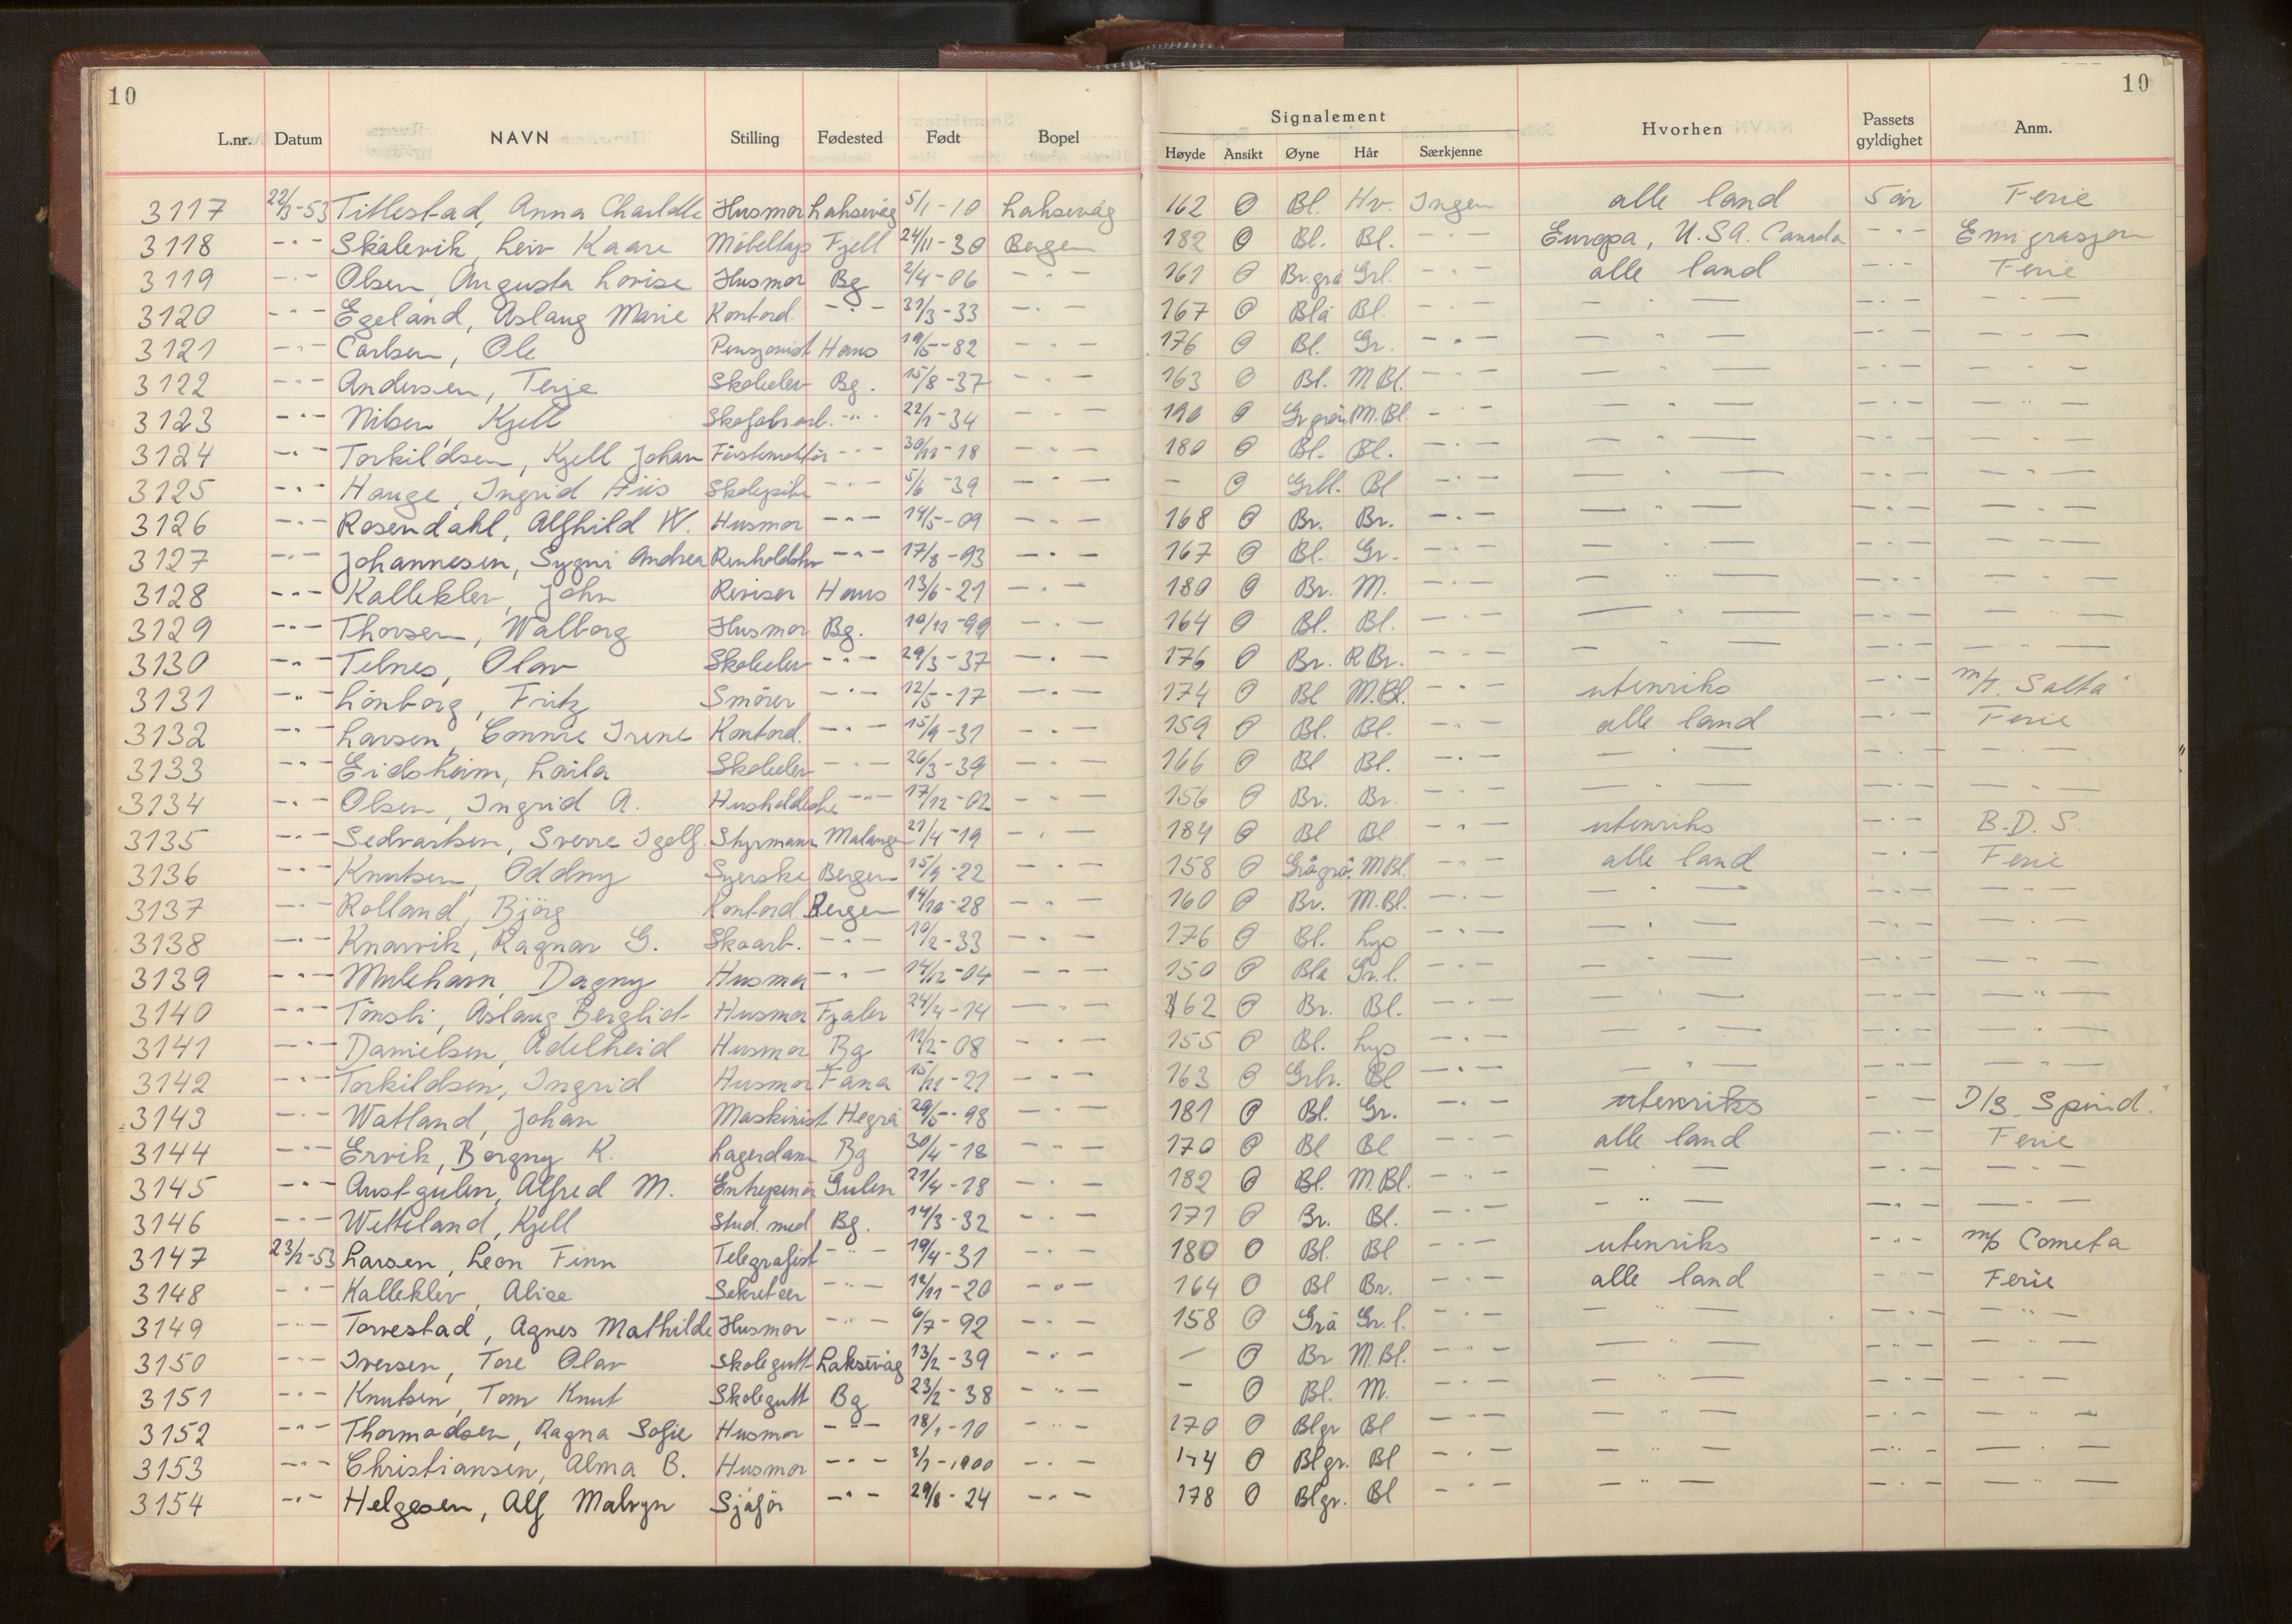 10
10
L.nr. Datum NAVN Stilling Fødested Født Bopel Signalement Høyde Ansikt Øyne Hår Særkjenne Hvorhen Passets gyldighet Anm.
3117 22/1-53 Tittlestad, Anna Charlotte Husmor Laksevåg 5/1-10 Laksevåg 162 O Bl. Hv. Ingen alle land 5 år Ferie
3118 -"- Skålevik, Leiv Kaare Möbeltap Fjell 24/11-30 Bergen 182 O Bl. Bl. -"- Europa, U.S.A. Canada -"- Emigrasjon
3119 -"- Olsen, Augusta Lovise Husmor Bg 2/4-06 -"- 161 O Br.grå Grl. -"- alle land -"- Ferie
3120 -"- Egeland, Aslaug Marie Kontord. -"- 31/3-33 -"- 167 O Blå Bl. -"- -"- -"- -"-
3121 -"- Carlsen, Ole Pensjonist Haus 19/5-82 -"- 176 O Bl. Gr. -"- -"- -"- -"-
3122 -"- Andersen, Terje Skoleelev Bg. 15/8-37 -"- 163 O Bl. M Bl. -"- -"- -"- -"-
3123 -"- Nilsen, Kjell Skofabr.arb. -"- 22/1-34 -"- 190 O M.Bl. -"- -"- -"- -"-
3124 -"- Torkildsen, Kjell Johan -"- 30/11-18 -"- 180 O Bl. Bl. -"- -"- -"- -"-
3125 -"- Hauge, Ingrid Hiis Skolepike -"- 5/6-39 -"- - O Grbl. Bl -"- -"- -"- -"-
3126 -"- Rosendahl, Alfhild W. Husmor -"- 14/5-09 -"- 168 O Br. Br. -"- -"- -"- -"-
3127 -"- Johannesen, Sygni Andrea -"- 17/8-93 -"- 167 O Bl. Gr. -"- -"- -"- -"-
3128 -"- Kalleklev, John Revisor Haus 13/6-21 -"- 180 O Br. M. -"- -"- -"- -"-
3129 -"- Thorsen, Walborg Husmor Bg. 10/11-99 -"- 164 O Bl. Bl. -"- -"- -"- -"-
3130 -"- Telnes, Olav Skoleelev -"- 29/3-37 -"- 176 O Br. R Br. -"- -"- -"- -"-
3131 -"- Lönborg, Fritz Smörer -"- 12/5-17 -"- 174 O Bl M.Bl. -"- utenriks -"- m/t. Salta"
3132 -"- Larsen, Connie Irene Kontord. -"- 15/9-31 -"- 159 O Bl. Bl. -"- alle land -"- Ferie
3133 -"- Eidsheim, Laila Skoleelev -"- 26/3-39 -"- 166 O Bl Bl. -"- -"- -"- -"-
3134 -"- Olsen, Ingrid A. -"- 17/12-02 -"- 156 O Br. Br. -"- -"- -"- -"-
3135 -"- Sedvartsen, Sverre Styrmann Malangen 21/4-19 -"- 184 O Bl Bl -"- utenriks -"- B.D.S.
3136 -"- Knutsen, Oddny Syerske Bergen 15/9-22 -"- 158 O M Bl. -"- alle land -"- Ferie
3137 -"- Rolland, Björg Kontord Bergen 14/10-28 -"- 160 O Br. M.Bl. -"- -"- -"- -"-
3138 -"- Knarvik, Ragnar G. Skoarb. -"- 10/2-33 -"- 176 O Bl. Lys -"- -"- -"- -"-
3139 -"- Muleham, Dagny Husmor -"- 14/12-04 -"- 150 O Blå Gr.l. -"- -"- -"- -"-
3140 -"- Aslaug Bergliot Husmor Fjaler 24/4-14 -"- 162 O Br. Bl. -"- -"- -"- -"-
3141 -"- Danielsen, Adelheid Husmor Bg 11/2-08 -"- 155 O Bl. Lys -"- -"- -"- -"-
3142 -"- Torkildsen, Ingrid Husmor Fana 15/12-21 -"- 163 O Grbr. Bl -"- -"- -"- -"-
3143 -"- Watland, Johan Maskinist Hegra 29/5-98 181 O Bl. Gr. -"- utenriks -"- D/S. Spind.
3144 -"- Ervik, Borgny K. Lagerdame Bg 30/4-18 -"- 170 O Bl Bl -"- alle land -"- Ferie
3145 -"- Austgulen, Alfred M. Entrepenör Gulen 21/4-18 -"- 182 O Bl. M.Bl. -"- -"- -"- -"-
3146 -"- Wetteland, Kjell Stud. med Bg. 14/3-32 -"- 171 O Br. Bl. -"- -"- -"- -"-
3147 23/1-53 Larsen, Leon Finn Telegrafist -"- 19/4-31 -"- 180 O Bl. Bl -"- utenriks -"- m/s Cometa
3148 -"- Kalleklev, Alice Sekretær -"- 12/11-20 -"- 164 O Bl Br. -"- alle land -"- Ferie
3149 -"- Torvestad, Agnes Mathilde Husmor -"- 6/7-92 -"- 158 O Grå Gr.l. -"- -"- -"- -"-
3150 -"- Iversen, Tore Olav Skolegutt Laksevåg 13/2-39 -"- - O Br M.Bl. -"- -"- -"- -"-
3151 -"- Knutsen, Tom Knut Skolegutt Bg 23/2-38 -"- - O Bl. M. -"- -"- -"- -"-
3152 -"- Thormodsen, Ragna Sofie Husmor -"- 18/1-10 -"- 170 O Blgr Bl -"- -"- -"- -"-
3153 -"- Christiansen, Alma C. Husmor -"- 3/1-1900 -"- 144 O Blgr. Bl -"- -"- -"- -"-
3154 -"- Helgesen, Alf Malvyn Sjåför -"- 29/8-24 -"- 178 O Blgr. Bl -"- -"- -"- -"-